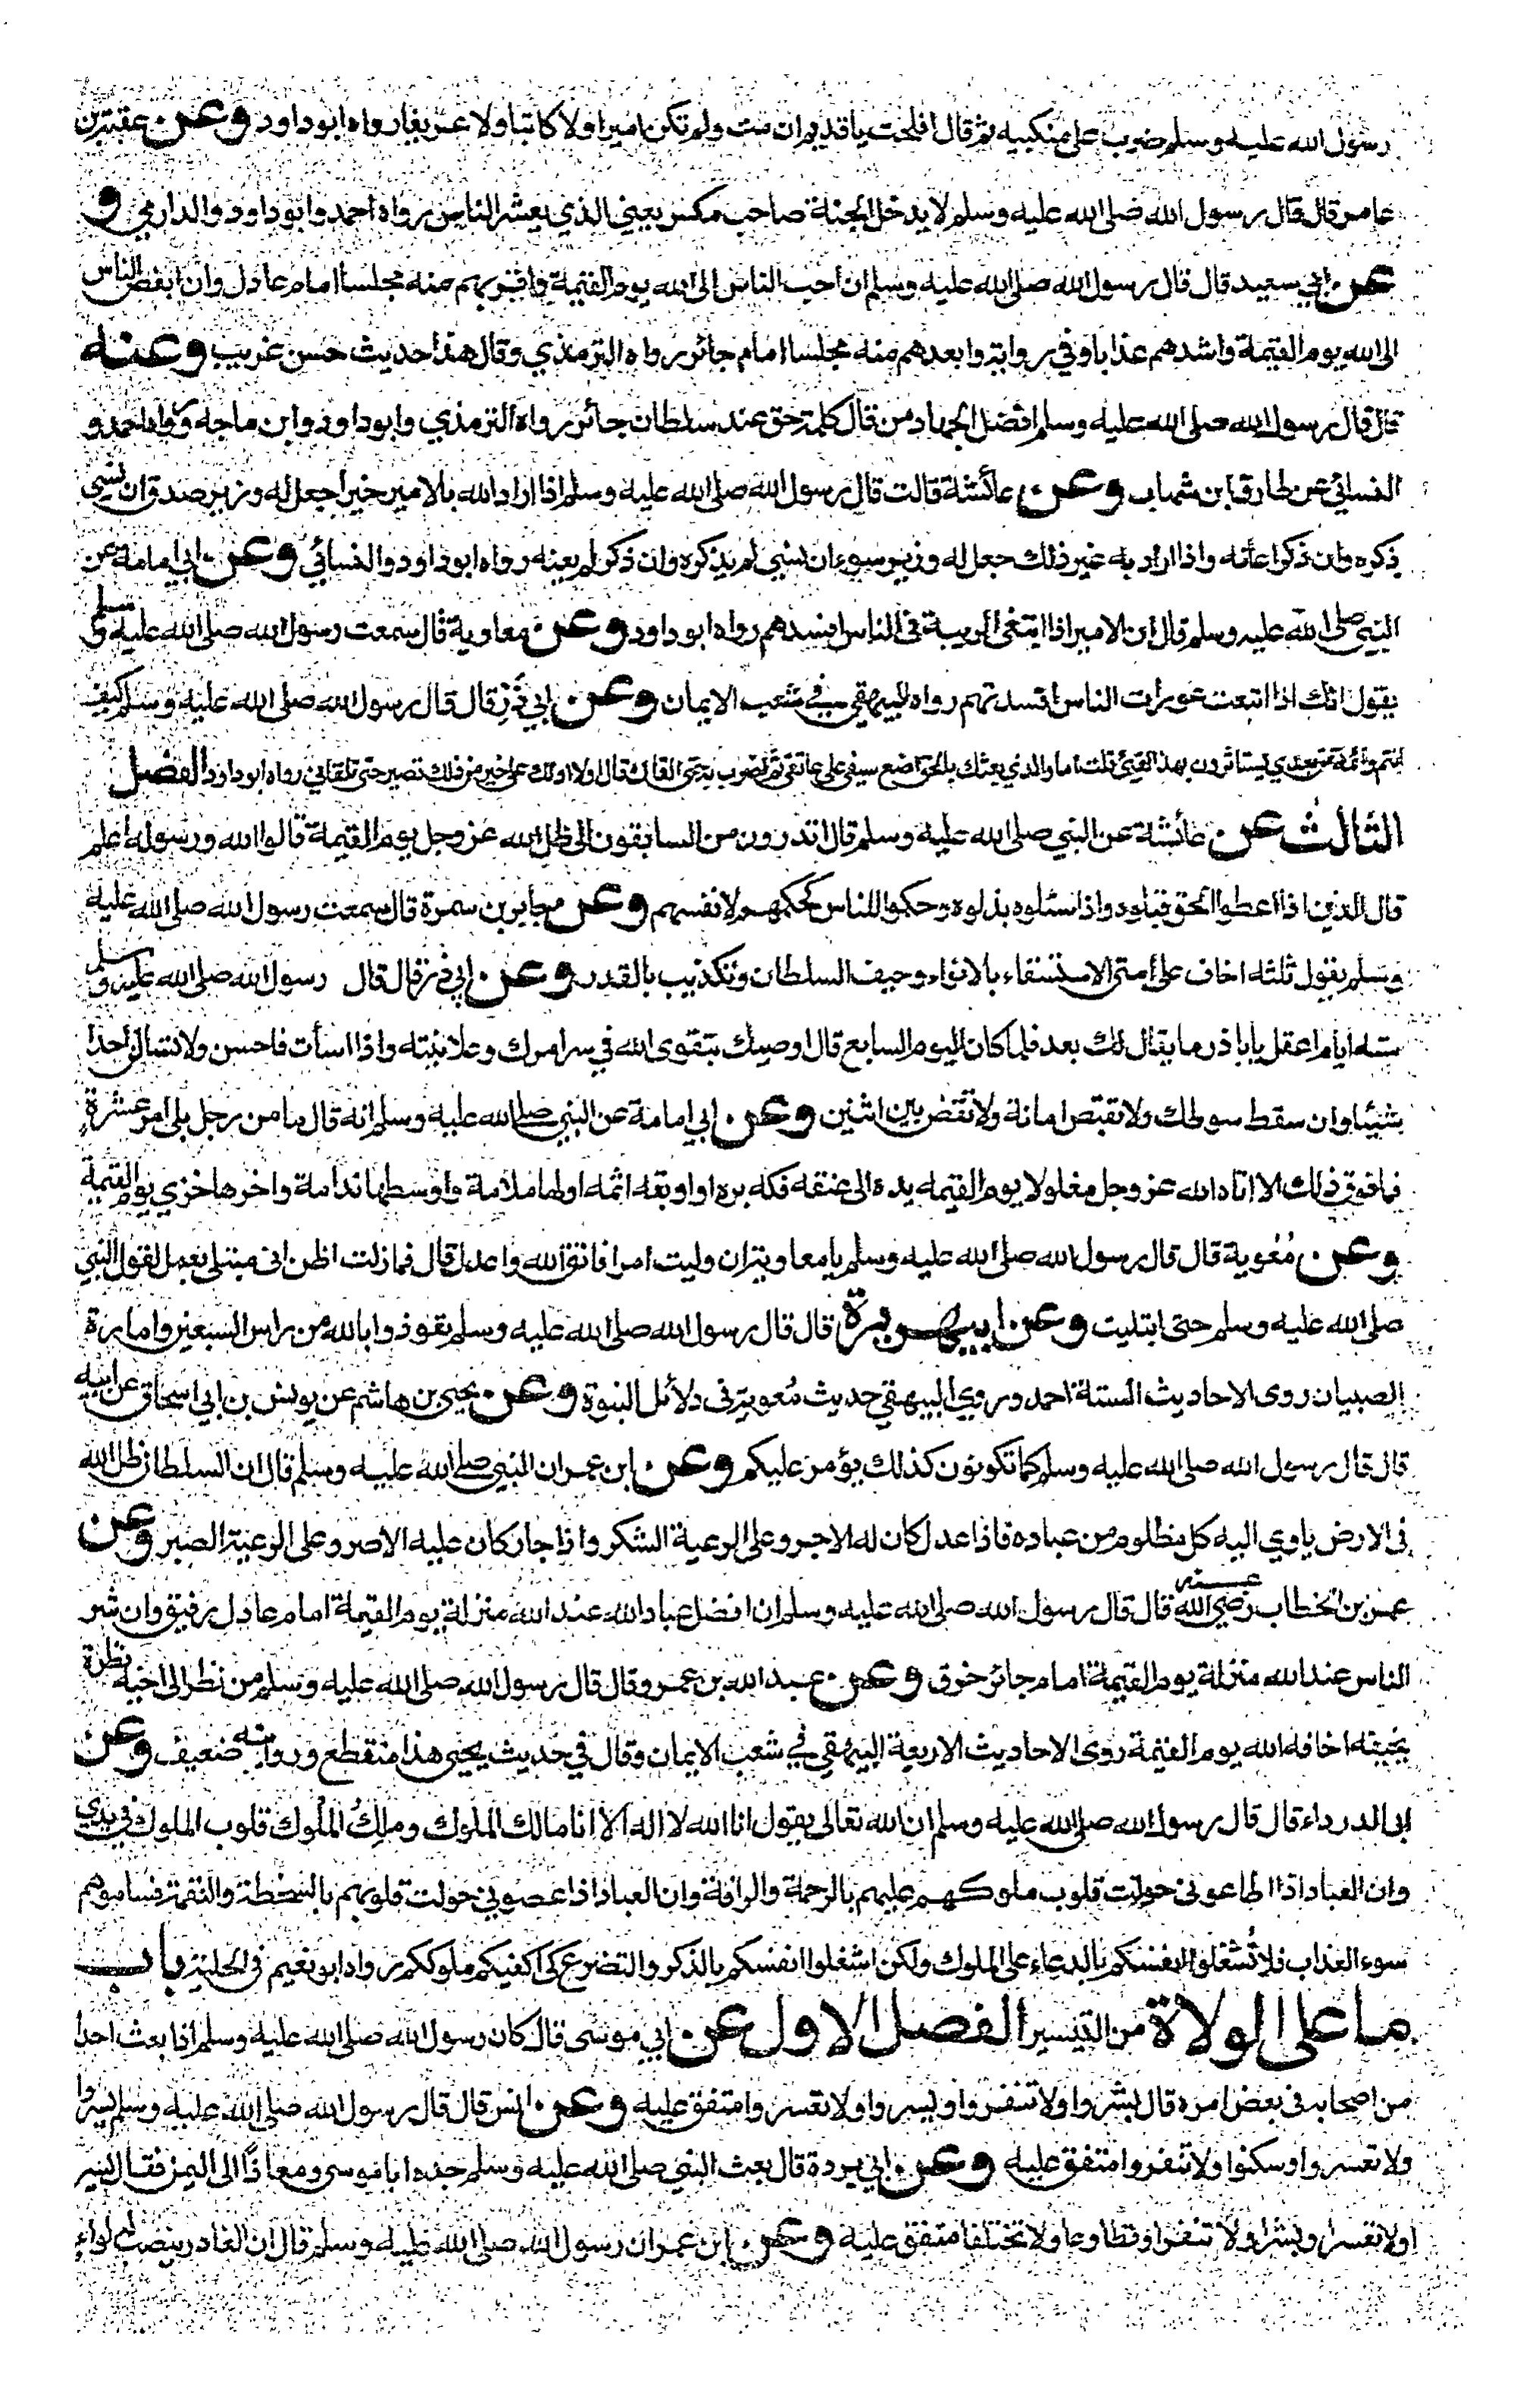 رسول الله عليه وسلم ضرب على منكبيه ثم قال افلحت يا قديم ان مت ولم تكن اميرا ولا كاتبا ولا عريفا رواه ابوداود وعن عقبة بن
عامر قال قال رسول الله صلى الله عليه وسلم لا يدخل الجنة صاحب مكس يعني الذي يعشر الناس رواه احمد وابوداود والدارمي و
عن ابي سعيد قال قال رسول الله صلى الله عليه وسلم ان احب الناس الى الله يوم القيمة واقربهم منه مجلسا امام عادل وان ابغض الناس
الى الله يوم القيمة واشدهم عذابا وفي رواية وابعدهم منه مجلسا امام جائر رواه الترمذي وقال هذا حديث حسن غريب وعنه
قال قال رسول الله صلى الله عليه وسلم افضل الجهاد من قال كلمة حق عند سلطان جائر رواه الترمذي وابوداود وابن ماجه ورواه احمد و
النسائي عن طارق ابن شهاب وعن عائشة قالت قال رسول الله صلى الله عليه وسلم اذا اراد الله بالامير خيرا جعل له وزير صدق ان نسي
ذكره وان ذكر اعانه واذا اراد به غير ذلك جعل له وزير سوء ان نسي لم يذكره وان ذكر لم يعنه رواه ابوداود والنسائي وعن ابي امامة عن
النبي صلى الله عليه وسلم قال ان الامير اذا ابتغى الريبة في الناس افسدهم رواه ابوداود وعن معاوية قال سمعت رسول الله صلى الله عليه وسلم
يقول انك اذا اتبعت عورات الناس افسدتهم رواه البيهقي في شعب الايمان وعن ابي ذر قال قال رسول الله صلى الله عليه وسلم كيف
انتم وائمة من بعدي يستاثرون بهذا الفيئ قلت اما والذي بعثك بالحق اضع سيفي على عاتقي ثم اضرب به حتى القاك قال اولا ادلك على خير من ذلك تصبر حتى تلقاني رواه ابوداود الفصل
الثالث عن عائشة عن النبي صلى الله عليه وسلم قال اتدرون من السابقون الى ظل الله عز وجل يوم القيمة قالوا الله ورسوله اعلم
قال الذين اذا اعطوا الحق قبلوه واذا سئلوه بذلوه وحكموا للناس كحكمهم لانفسهم وعن جابر بن سمرة قال سمعت رسول الله صلى الله عليه
وسلم يقول ثلثه اخاف على امتي الاستسقاء بالانواء وحيف السلطان وتكذيب بالقدر وعن ابي ذر قال قال رسول الله صلى الله عليه وسلم
ستة ايام اعقل يا باذر ما يقال لك بعد فلما كان اليوم السابع قال اوصيك بتقوى الله في سر امرك وعلانيته واذا اسأت فاحسن ولا تسالن احدا
شيئا وان سقط سوطك ولا تقبض امانة ولا تقض بين اثنين وعن ابي امامة عن النبي صلى الله عليه وسلم انه قال ما من رجل يلي امر عشرة
فما فوق ذلك الا اتاه الله عز وجل مغلولا يوم القيمه يده الى عنقه فكه بره او اوبقه اثمه اولها ملامة واوسطها ندامة واخرها خزي يوم القيمة
وعن مُعٰوية قال قال رسول الله صلى الله عليه وسلم يا معاوية ان وليت امرا فاتق الله واعدل قال فما زلت اظن اني مبتلى بعمل لقول النبي
صلى الله عليه وسلم حتى ابتليت وعن ابي هريرة قال قال رسول الله صلى الله عليه وسلم تعوذوا بالله من راس السبعين وامارة
الصبيان روى الاحاديث الستة احمد وروي البيهقي حديث مُعوية في دلائل النبوة وعن يحيى بن هاشم عن يونس بن ابي اسحاق عن ابيه
قال قال رسول الله صلى الله عليه وسلم كما تكونون كذلك يؤمر عليكم وعن ابن عمر ان النبي صلى الله عليه وسلم قال ان السلطان ظل الله
في الارض ياوي اليه كل مظلوم من عباده فاذا عدل كان له الاجر وعلى الرعية الشكر واذا جار كان عليه الاصر وعلى الرعية الصبر وعن
عمر بن الخطاب رضي الله عنه قال قال رسول الله صلى الله عليه وسلم ان افضل عباد الله عند الله منزلة يوم القيمة امام عادل رفيق وان شر
الناس عند الله منزلة يوم القيمة امام جائر خرق وعن عبد الله بن عمرو قال قال رسول الله صلى الله عليه وسلم من نظر الى اخيه نظرة
يخيفه اخافه الله يوم القيمة روى الاحاديث الاربعة البيهقي في شعب الايمان وقال في حديث يحيى هذا منقطع وروايته ضعيف وعن
ابي الدرداء قال قال رسول الله صلى الله عليه وسلم ان الله تعالى يقول انا الله لا اله الا انا مالك الملوك وملِكُ الملُوك قلوب الملوك في يدي
وان العباد اذا اطاعوني حولت قلوب ملوكهم عليهم بالرحمة والرافة وان العباد اذا عصوني حولت قلوبهم بالسخطة والنقمة فساموهم
سوء العذاب فلا تُشْغلوا انفسكم بالدعاء على الملوك ولكن اشغلوا انفسكم بالذكر والتضرع كي اكفيكم ملوككم رواه ابو نعيم في الحلية باب
ما على الولاة من التيسير الفصل الاول عن ابي موسى قال كان رسول الله صلى الله عليه وسلم اذا بعث احدا
من اصحابه في بعض امره قال بشروا ولا تنفروا ويسروا ولا تعسروا متفق عليه وعن انس قال قال رسول الله صلى الله عليه وسلم يسروا
ولا تعسروا وسكنوا ولا تنفروا متفق عليه وعن ابي بردة قال بعث النبي صلى الله عليه وسلم جده ابا موسى ومعاذًا الى اليمن فقال يسر
اولا تعسرا وبشرا ولا تنفرا وتطاوعا ولا تختلفا متفق عليه وعن ابن عمر ان رسول الله صلى الله عليه وسلم قال ان الغادر ينصب له لواء